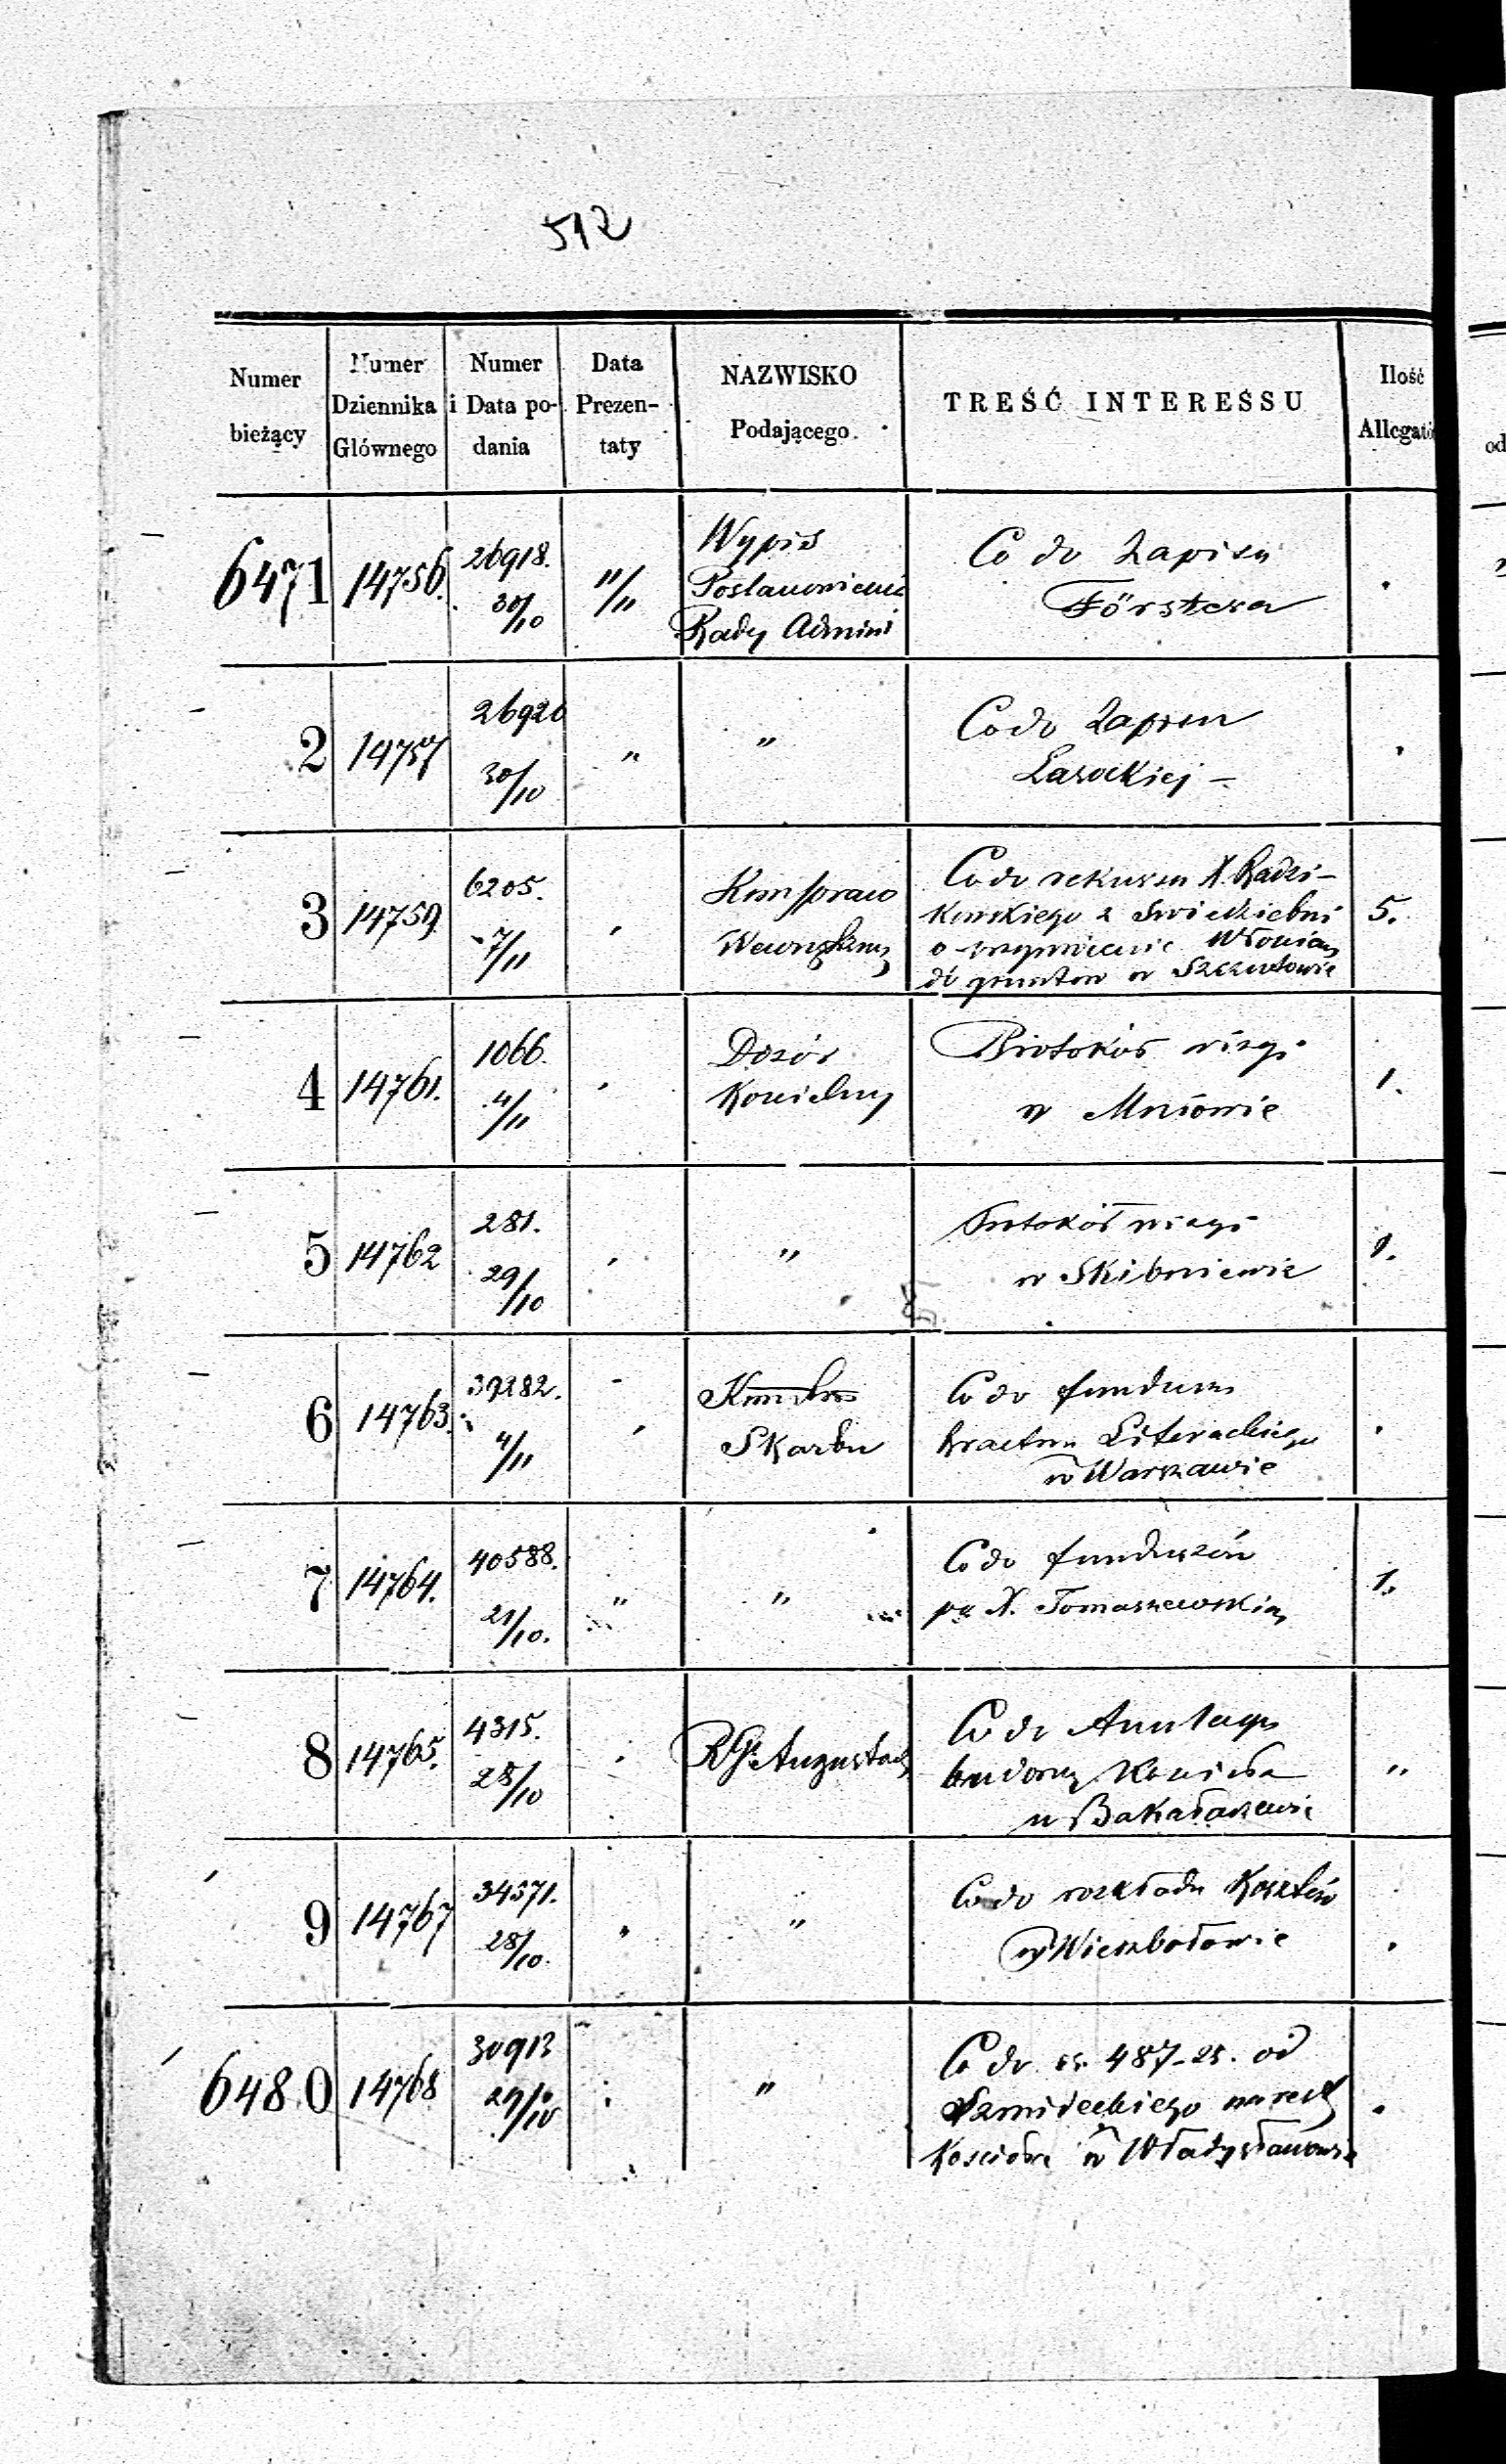 512
Numer bieżący | Numer Dziennika Głównego | Numer i Data podania | Data Prezentaty | NAZWISKO Podającego. | TREŚĆ INTERESSU | Ilość
6471 | 14756. | 26918. 30/10 | 11/11 | Wypis Postanowienia Rady Admini | Co do Zapisu Förstera | .
2 | 14757 | 26920 30/10 | " | " | Co do Zapisu Lasockiej – | .
3 | 14759 | 6205. 7/11 | " | Kom spraw Wewnętrzny | Co do rekursu X. Radzikowskiego z Swiedziebni o włościan do gruntów w Szczutowie | 5.
4 | 14761. | 1066. 4/11 | " | Dozór Kościelny | Protokół wizyi w Mniowie | 1.
5 | 14762 | 281. 29/10 | " | " | Protokół wizyi w Skibniewie | 1.
6 | 14763. | 39282. 4/11 | " | Skarbu | Co do funduszu bractwa Literackiego w Warszawie | .
7 | 14764. | 40588. 21/10. | " | " | Co do funduszów po X. Tomaszewskim | 1.
8 | 14765. | 4315. 28/10 | " | RG. Augustow | Co do budowy Kościoła w Bakałarzewie | "
9 | 14767 | 34571. 28/10. | " | " | Co do rozkładu Kosztów w Wierzbołowie | .
6480 | 14768 | 30913 29/10 | " | " | Co do rs. 487-25. od na Kościoła w Władysławowie | .